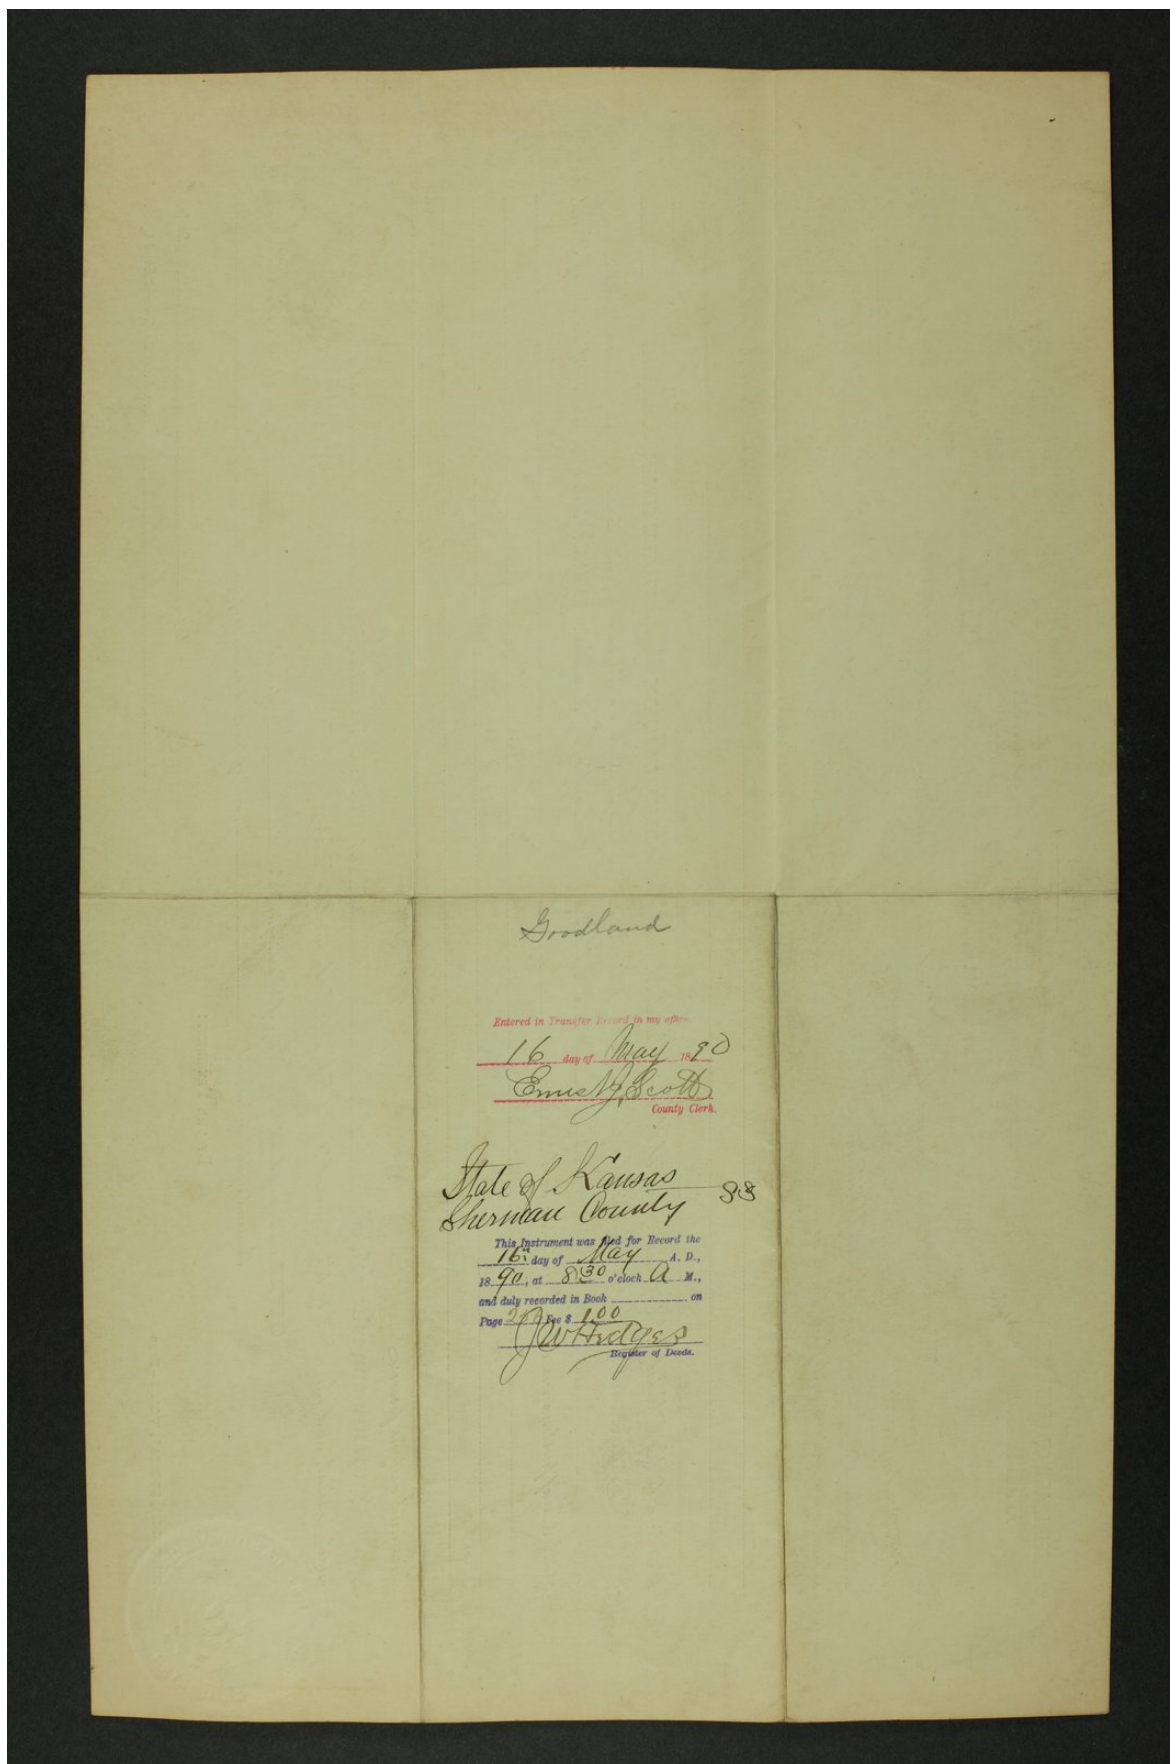 Goodland
Entered in Transfer Record in my office
16 day of May 1890
Ernest J. Scott
County Clerk.
State of Kansas
Sherman County SS
This Instrument was filed for Record the
16" day of May A. D.,
1890, at 8:30 o'clock A M.,
and duly recorded in Book on
Page Fee $ 1.00
J W Hedges
Register of Deeds.